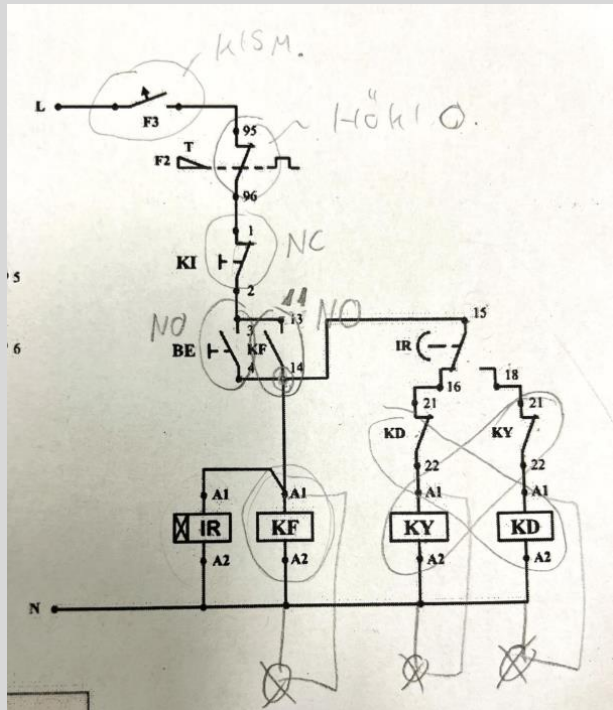 KISM.
L
F3
95
HŐKI O.
T
F2
96
1
KI
NC
2
5
6
NO
3
13
NO
BE
KF
4
14
15
IR
16
18
21
21
KD
KY
22
22
A1
A1
A1
A1
IR
KF
KY
KD
A2
A2
A2
A2
N